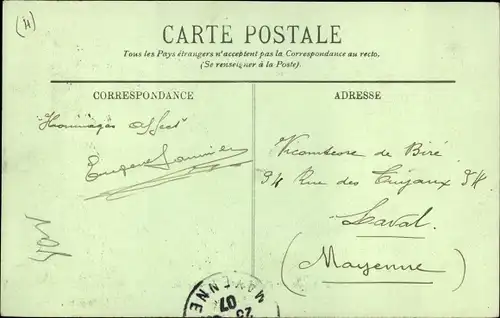 (11)
CARTE POSTALE
Tous les Pays étrangers n'acceptent pas la Correspondance au recto.
(Se renseigner à la Poste).
CORRESPONDANCE
"Hommages affect"
Eugène
ADRESSE
Vicomtesse de Biré
34 Rue des Tuyaux 34
Laval.
(Mayenne)
MAYENNE
07